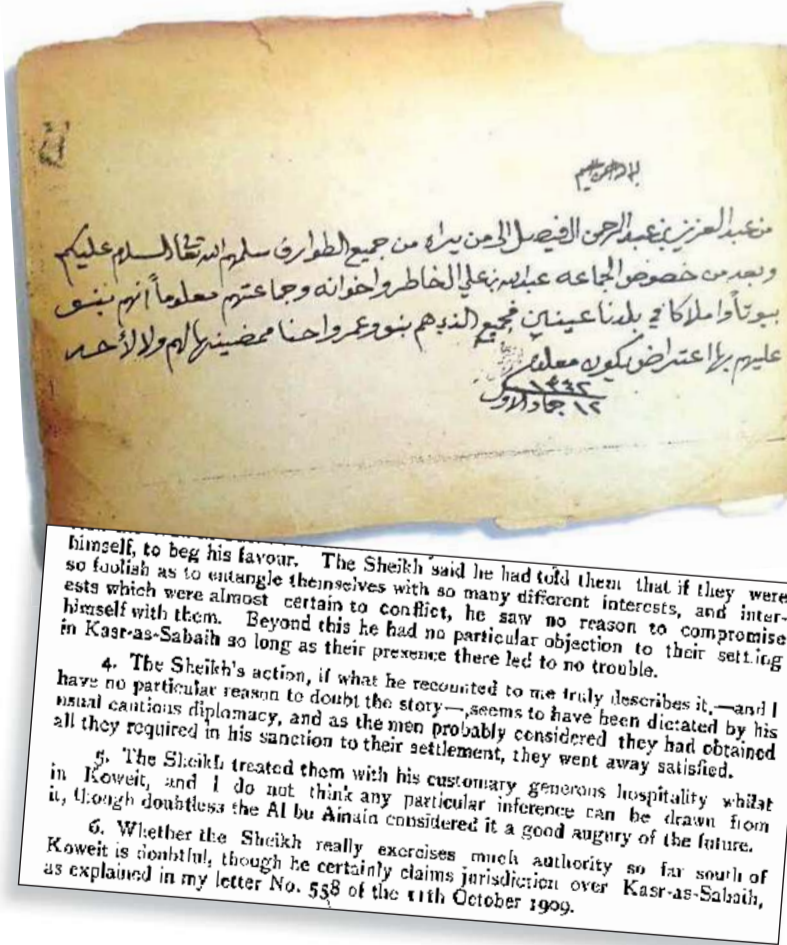 من عبد العزيز بن عبد الرحمن الفيصل الى من يراه من جميع الطوارف سلمهم الله تعالى السلام عليكم
وبعد من خصوص الجماعه عبد الله بن علي الخاطر واخوانه وجماعتهم معلوماً انهم بنو
بيوتاً واملاكا في بلدنا عينين فجميع الذي هم بنو وعمروا حنا ممضينها لهم ولا لأحد
عليهم بها اعتراض يكون معلوم
١٢ جماد الاول
himself, to beg his favour. The Sheikh said he had told them that if they were
so foolish as to entangle themselves with so many different interests, and inter-
ests which were almost certain to conflict, he saw no reason to compromise
himself with them. Beyond this he had no particular objection to their settling
in Kasr-as-Sabaih so long as their presence there led to no trouble.
4. The Sheikh's action, if what he recounted to me truly describes it,—and I
have no particular reason to doubt the story—,seems to have been dictated by his
usual cautious diplomacy, and as the men probably considered they had obtained
all they required in his sanction to their settlement, they went away satisfied.
5. The Sheikh treated them with his customary generous hospitality whilst
in Koweit, and I do not think any particular inference can be drawn from
it, though doubtless the Al bu Ainain considered it a good augury of the future.
6. Whether the Sheikh really exercises much authority so far south of
Koweit is doubtful, though he certainly claims jurisdiction over Kasr-as-Sabaih,
as explained in my letter No. 558 of the 11th October 1909.